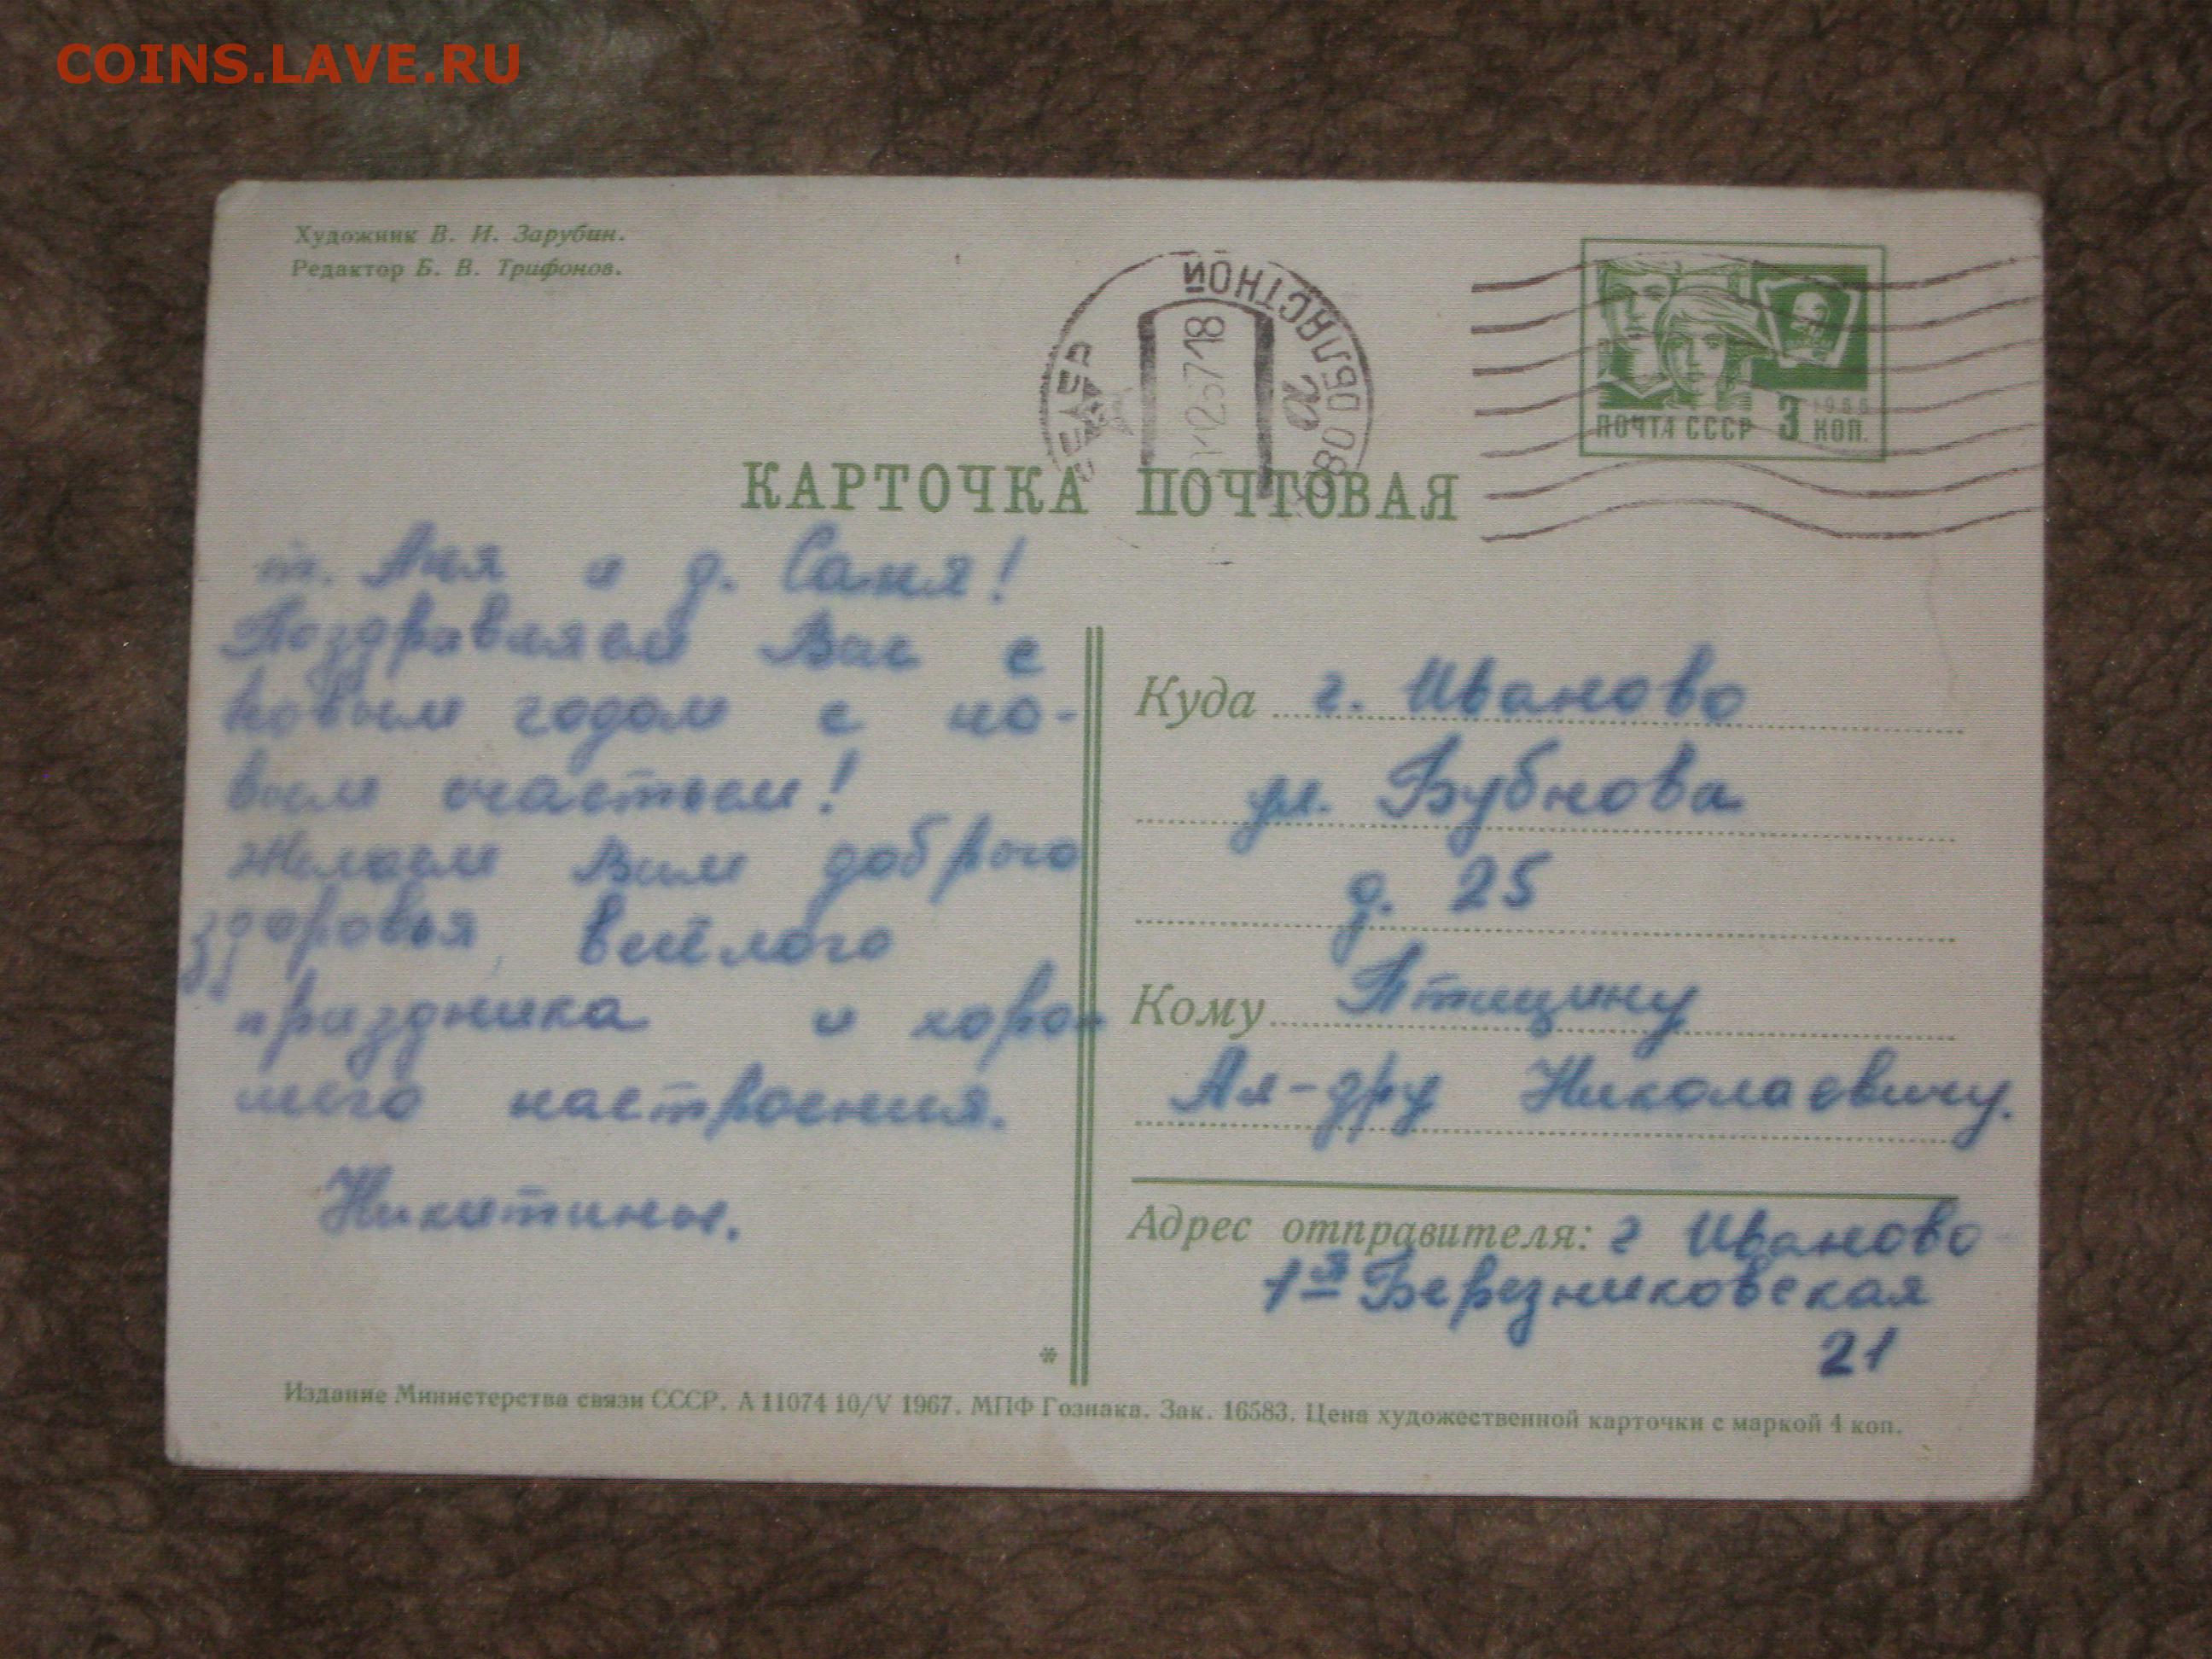 COINS.LAVE.RU
Художник В. И. Зарубин.
Редактор Б. В. Трифонов.
ОБЛАСТНОЙ
20
67 18
ПОЧТА СССР 3 КОП.
1966
КАРТОЧКА ПОЧТОВАЯ
т. Аня и д. Саня!
Поздравляем Вас с
новым годом с но-
вым счастьем!
Желаем Вам доброго
здоровья, весёлого
праздника и хоро-
шего настроения.
Никитины.
Куда г. Иваново
ул. Бубнова
д. 25
Кому Птицину
Ал-дру Николаевичу.
Адрес отправителя: г Иваново
1я Березниковская
21
*
Издание Министерства связи СССР. А 11074 10/V 1967. МПФ Гознака. Зак. 16583. Цена художественной карточки с маркой 4 коп.